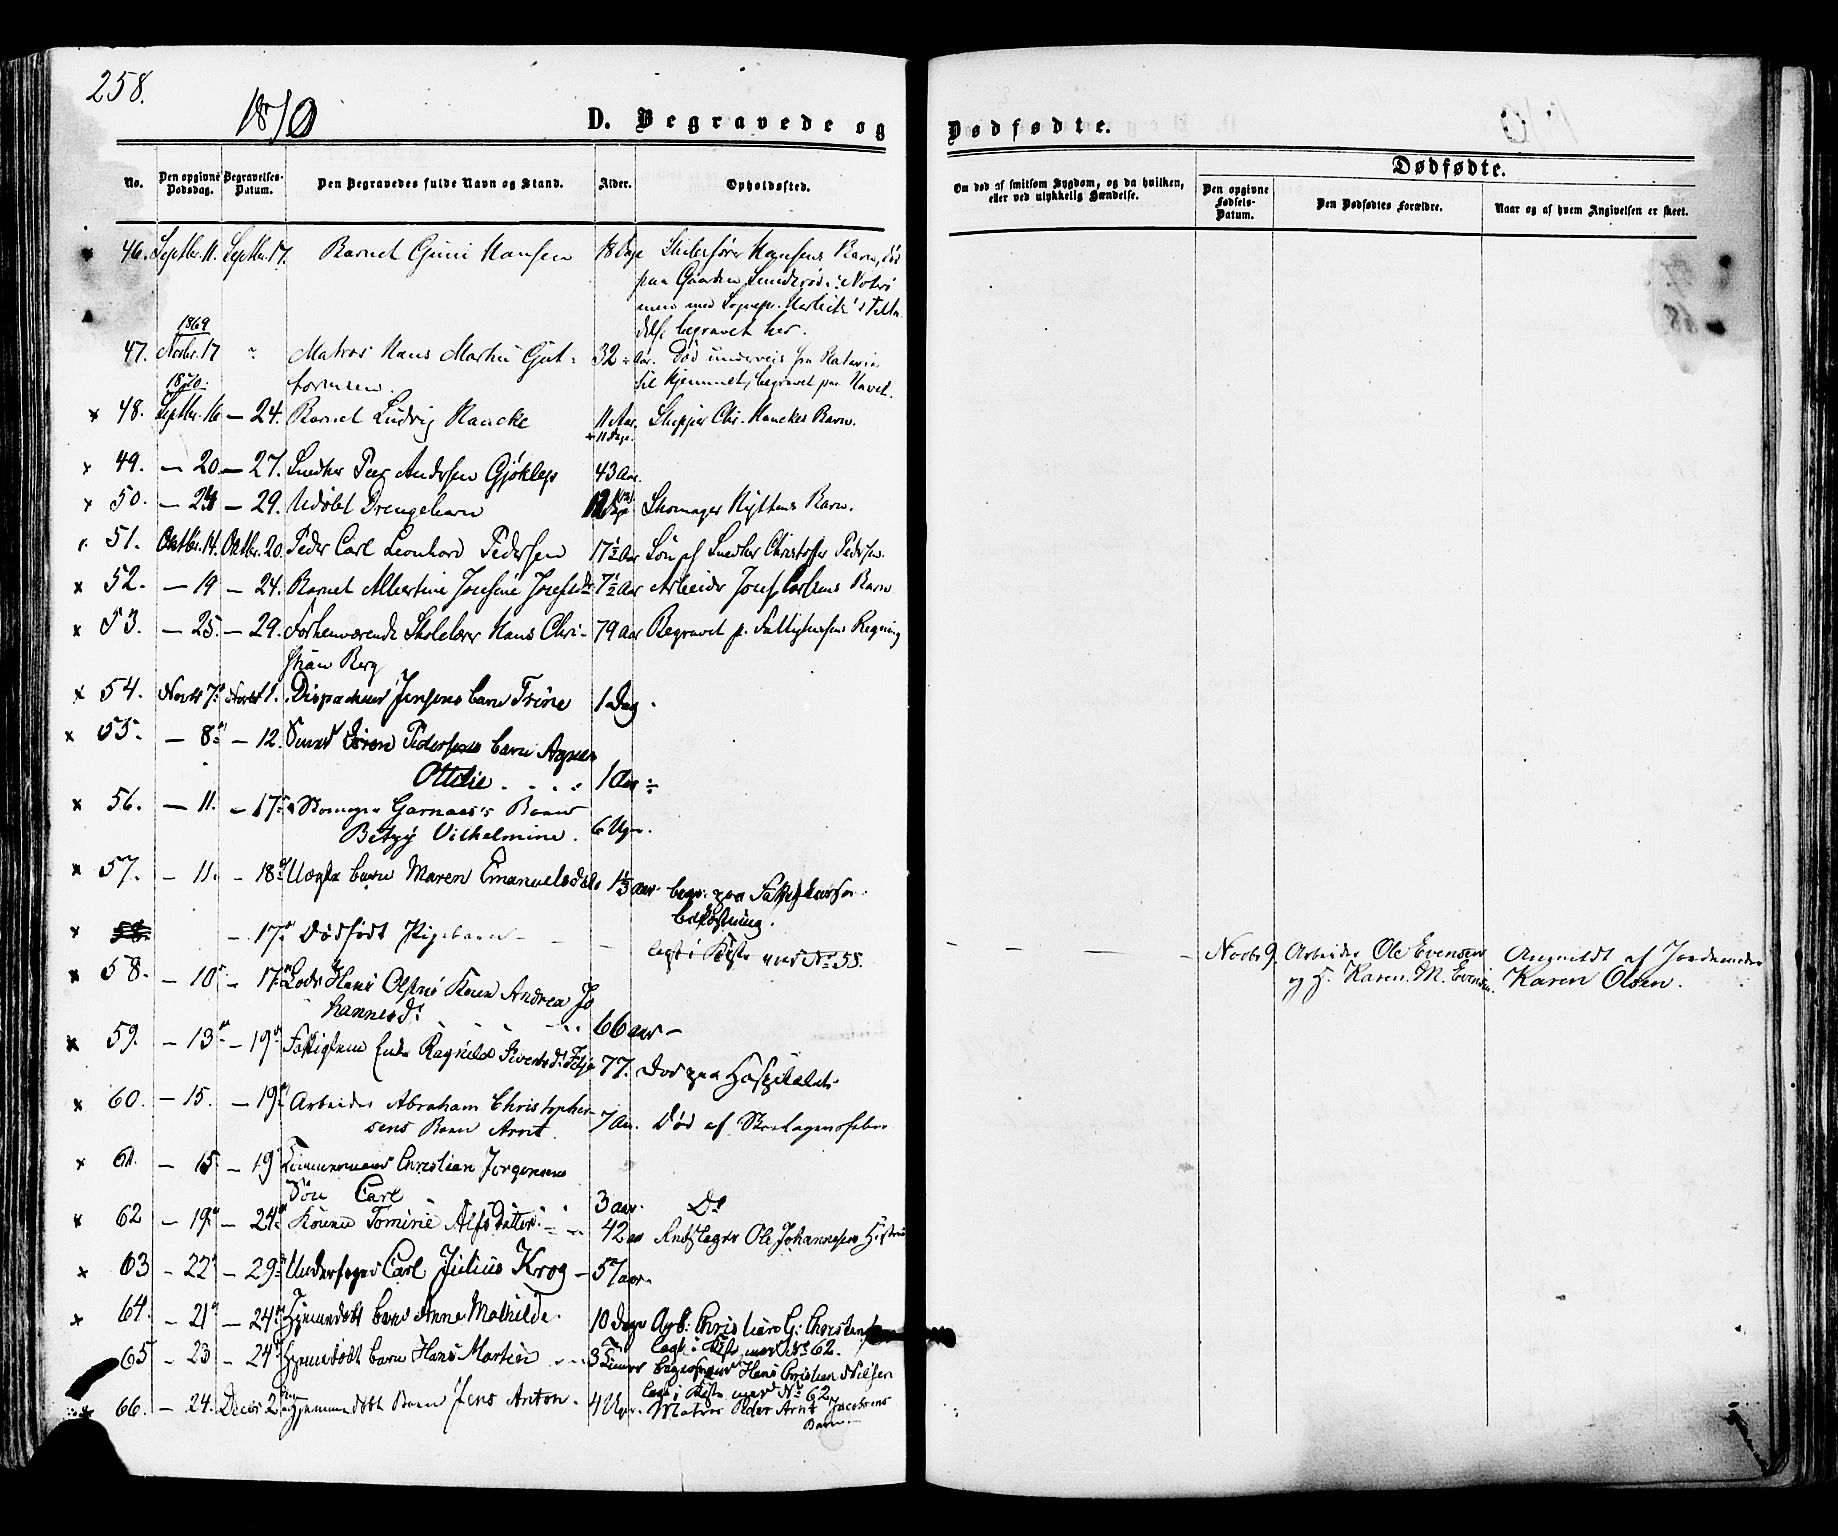 258.
1870
D. Begravede og
No.
Den opgivne Dødsdag.
Begravelses-Datum.
Den Begravedes fulde Navn og Stand.
Alder.
Opholdssted.
46. Septbr. 11. Septbr. 17. Barnet Hansen 18 Dage Hansens Barn, død
paa Gaarden i Nøtterø
med Sognepr.
begravet her.
1869
47. Novbr. 17 " Matros Hans Martin Gut- 32 Aar. Død underveis fra Batavia
til Hjemmet, begravet paa Havet.
1870.
tormsen.
× 48. Septbr. 16 — 24. Barnet Ludvig Hancke 11 Aar. Skipper Chr. Hanckes Barn.
+ 11 Dage.
× 49. — 20 — 27. Snedker Peer Andersen Gjøklep 43 Aar.
× 50. — 24 — 29. Udøbt Drengebarn 12 Dage Skomager Barn.
51. Oktbr. 14. Oktbr. 20. Peder Carl Leonhard Pedersen 17½ Aar Søn af Snedker Christoffer Pedersen.
× 52. — 19 — 24. Barnet Albertine Josefine Josefsdtr 7½ Aar Arbeider Josef Barn
× 53. — 25. — 29. Forhenværende Skolelærer Hans Chri- 79 Aar Begravet p. Regning
stian Berg
× 54. Novbr 7. Novbr 11. Dispacheur Jensens barn Trine 1 Dag.
× 55. — 8 — 12. Pedersens barn Agnes
Ottilie . . . . 1 Aar
× 56. — 11. — 17. Skomager Garnaes's Barn
Betzy Vilhelmine. 6 Uger.
× 57. — 11. — 18. Uægte barn Maren Emanuelsdatr begr. paa
bekostning.
× 58. — 17. Dødfødt Pigebarn — — — lagt i Kiste med No 55.
× 58. — 10 — 17. Lods Hans Olsens Kone Andrea Jo
hannesd. 66 aar —
× 59. — 13. — 19. Fattiglem Enke Ragnild Sivertsd. 77. Død paa Hospitalet.
× 60. — 15. — 19. Arbeider Abraham Christopher-
sens Barn Arnt. 7 Aar. Død af Skarlagensfeber
× 61. — 15 — 19 Tømmermand Christian Jørgensens
Søn Carl 3 aar. Do
× 62 — 19. — 24. Konen Tomine Alfsdatter. 42 aar Ole Johannesens Hustru
× 63 — 22 — 29. Underfoged Carl Julius Krog — 57 aar.
× 64. — 21 — 24. Hjemmedøbt barn Anne Mathilde. 10 Dage Arb: Christian G: Christensen
lagt i Kiste med No 62.
65 — 23 — 24 Hjemmedøbt barn Hans Martin . . . 3 Timer Hans Christian Nilsen
lagt i Kiste med No 62
66. — 24. Decbr 2 Hjemmedøbt Barn Jens Anton. 4 Uger. Matros Peder Arnt Jacobsens
Barn.
Dødfødte.
Om død af smitsom Sygdom, og da hvilken,
eller ved ulykkelig Hændelse.
Dødfødte.
Den opgivne Fødsels-Datum.
Den Dødfødtes Forældre.
Naar og af hvem Angivelsen er skeet.
— — — — Novbr 9. Arbeider Ole Evensen Anmeldt af Jordemoder
og H. Karen. M. Evensen. Karen Olsen.